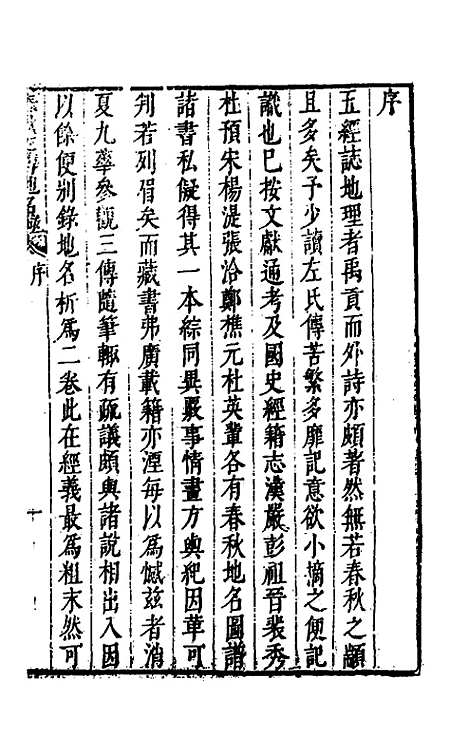 序
五經誌地理者禹貢而外詩亦頗著然無若春秋之顓
且多矣予少讀左氏傳苦繁多靡記意欲小摘之便記
識也已按文獻通考及國史經籍志漢嚴彭祖晉裴秀
杜預宋楊湜張洽鄭樵元杜英輩各有春秋地名圖譜
諸書私儗得其一本綜同異覈事情畫方輿紀因革可
判若列眉矣而藏書弗廣載籍亦湮每以為憾茲者消
夏九峯參觀三傳隨筆輙有疏議頗與諸說相出入因
以餘便別錄地名析為二卷此在經義最為粗末然可
序
一